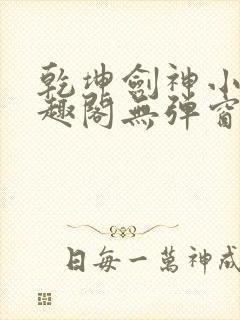 乾坤劍神小
趣閣無彈窗
日每一萬神成